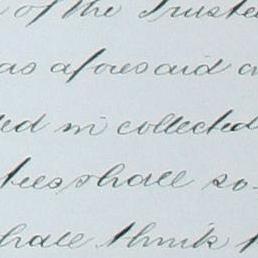 of the Trustee
as aforesaid
ed in collected
tees shall so
hall think